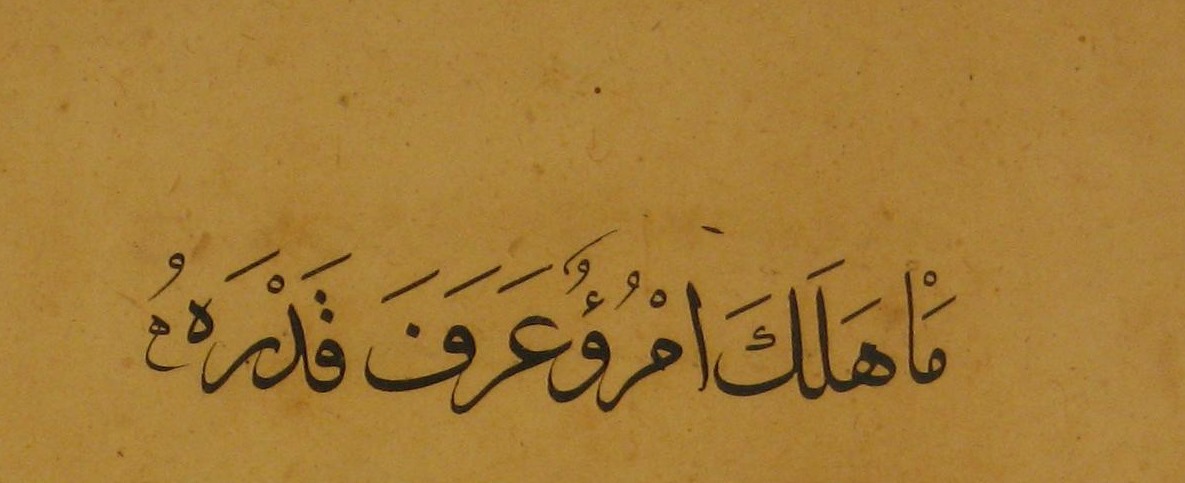 مَاْ هَلَكَ امْرُؤٌ عَرَفَ قَدْرَهُ